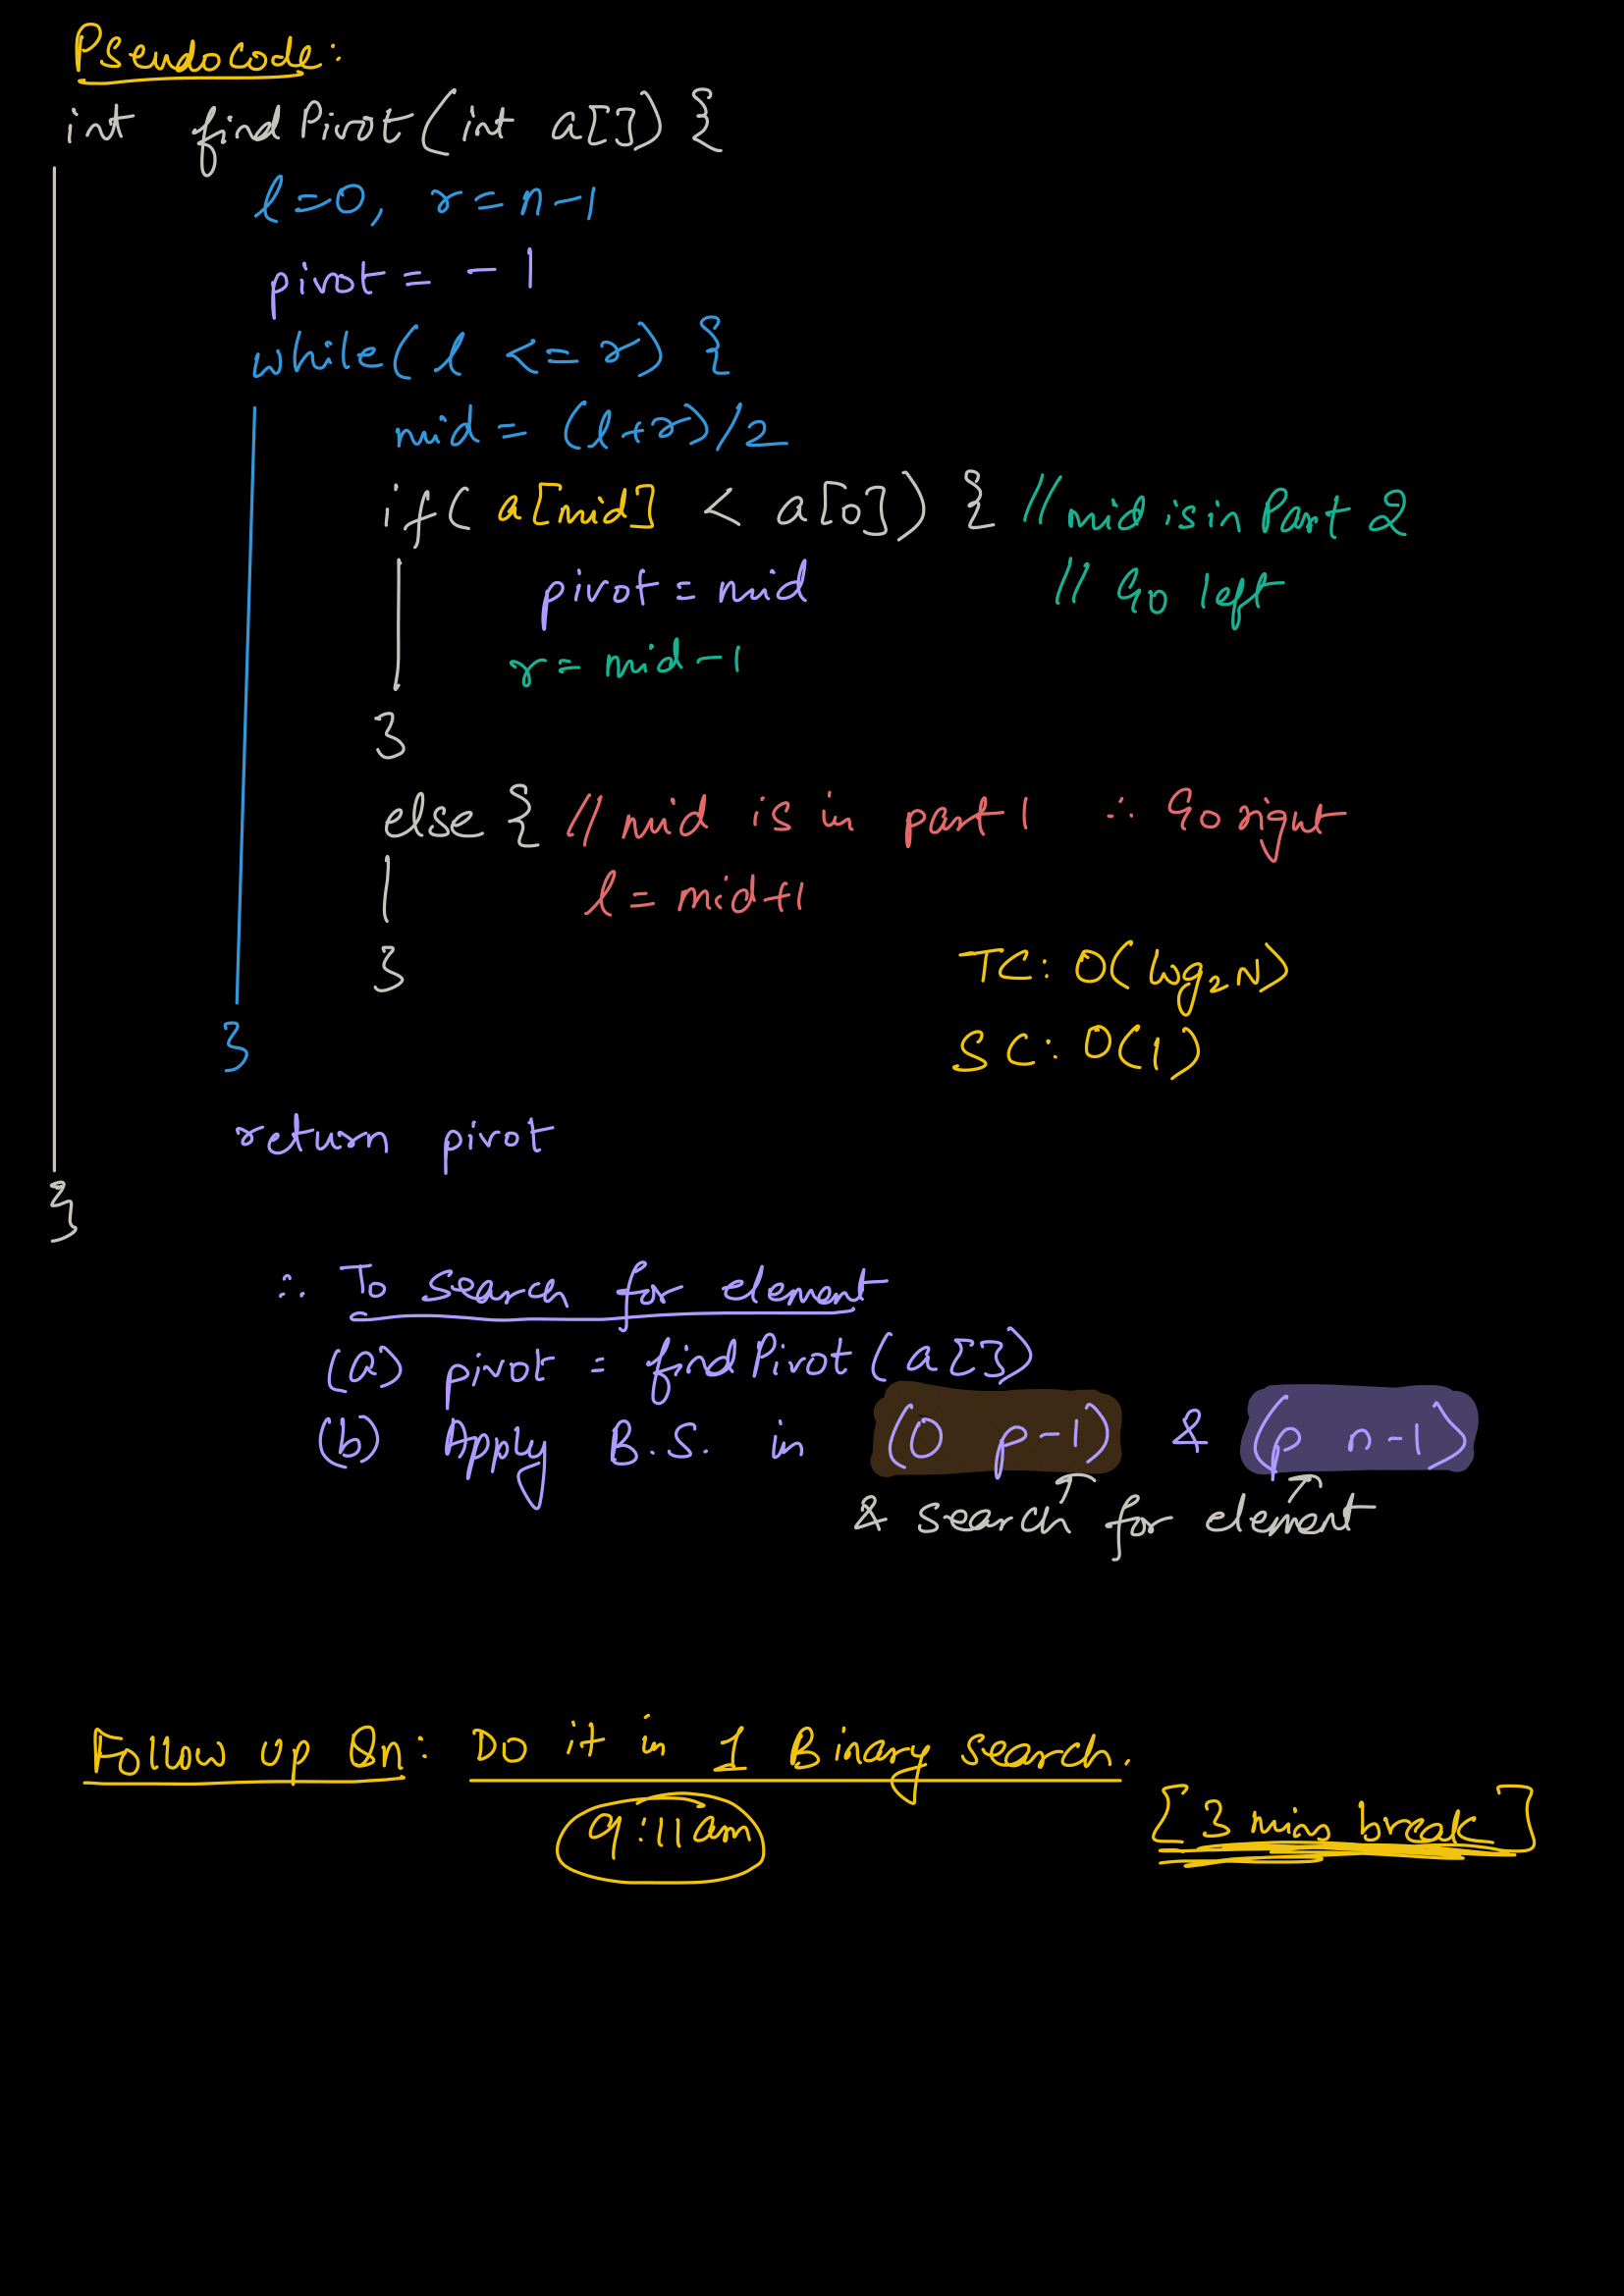 Pseudocode:
int findPivot(int a[]) {
l=0, r=n-1
pivot = -1
while( l <= r) {
mid = (l+r)/2
if( a[mid] < a[0]) { // mid is in Part 2
pivot = mid // Go left
r = mid-1
}
else { // mid is in part 1 ∴ Go right
l = mid+1
}
TC: O(log₂N)
}
SC: O(1)
return pivot
}
∴ To search for element
(a) pivot = findPivot(a[])
(b) Apply B.S. in (0 p-1) & (p n-1)
& search for element
Follow up Qn: Do it in 1 Binary search.
9:11am [3 mins break]